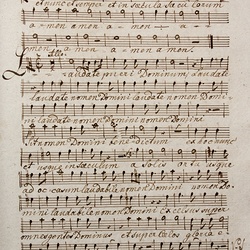 et nunc et semper et in saecula saeculorum
amen amen a - men a - mon
amen a - men a - men a men.
Laudate pueri Dominum, laudate
laudate nomen Domini laudate nomen Domi-
ni laudate nomen Domini nomen Domini
Sit nomen Domini bene-dictum ex hoc nunc
et usque in saeculum a Solis ortu usque
ad oc-casum laudabile nomen Domini nomen Do-
mini laudabile nomen Domini Excelsus super
omnes gentes Dominus et super coelos gloria e-